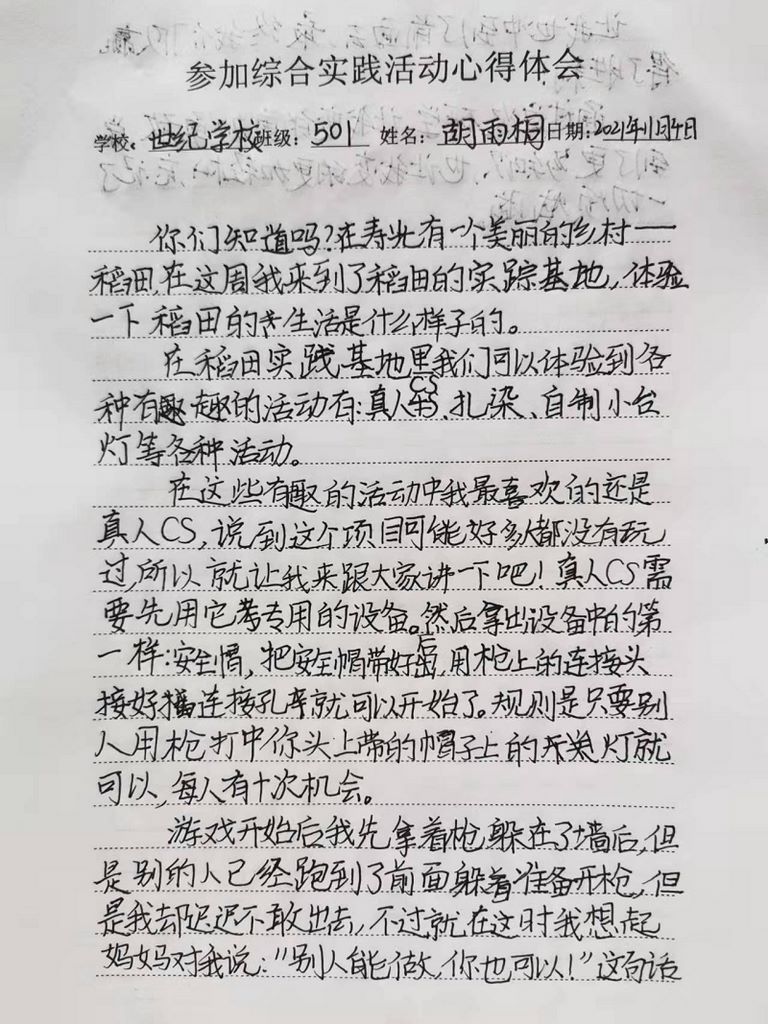 参加综合实践活动心得体会
学校：世纪学校班级：501 姓名：胡雨桐日期：2021年11月4日
你们知道吗？在寿光有一个美丽的乡村——
稻田，在这周我来到了稻田的实践基地，体验
一下稻田的生活是什么样子的。
在稻田实践基地里我们可以体验到各
种有趣的活动有：真人CS、扎染、自制小台
灯等各种活动。
在这些有趣的活动中我最喜欢的还是
真人CS，说到这个项目可能好多人都没有玩
过，所以就让我来跟大家讲一下吧！真人CS需
要先用它专用的设备。然后拿出设备中的第
一样：安全帽，把安全帽带好后，用枪上的连接头
接好连接孔就可以开始了。规则是只要别
人用枪打中你头上带的帽子上的灯就
可以，每人有十次机会。
游戏开始后我先拿着枪躲在了墙后，但
是别的人已经跑到了前面躲着准备开枪，但
是我却迟迟不敢出去，不过就在这时我想起
妈妈对我说："别人能做，你也可以！"这句话